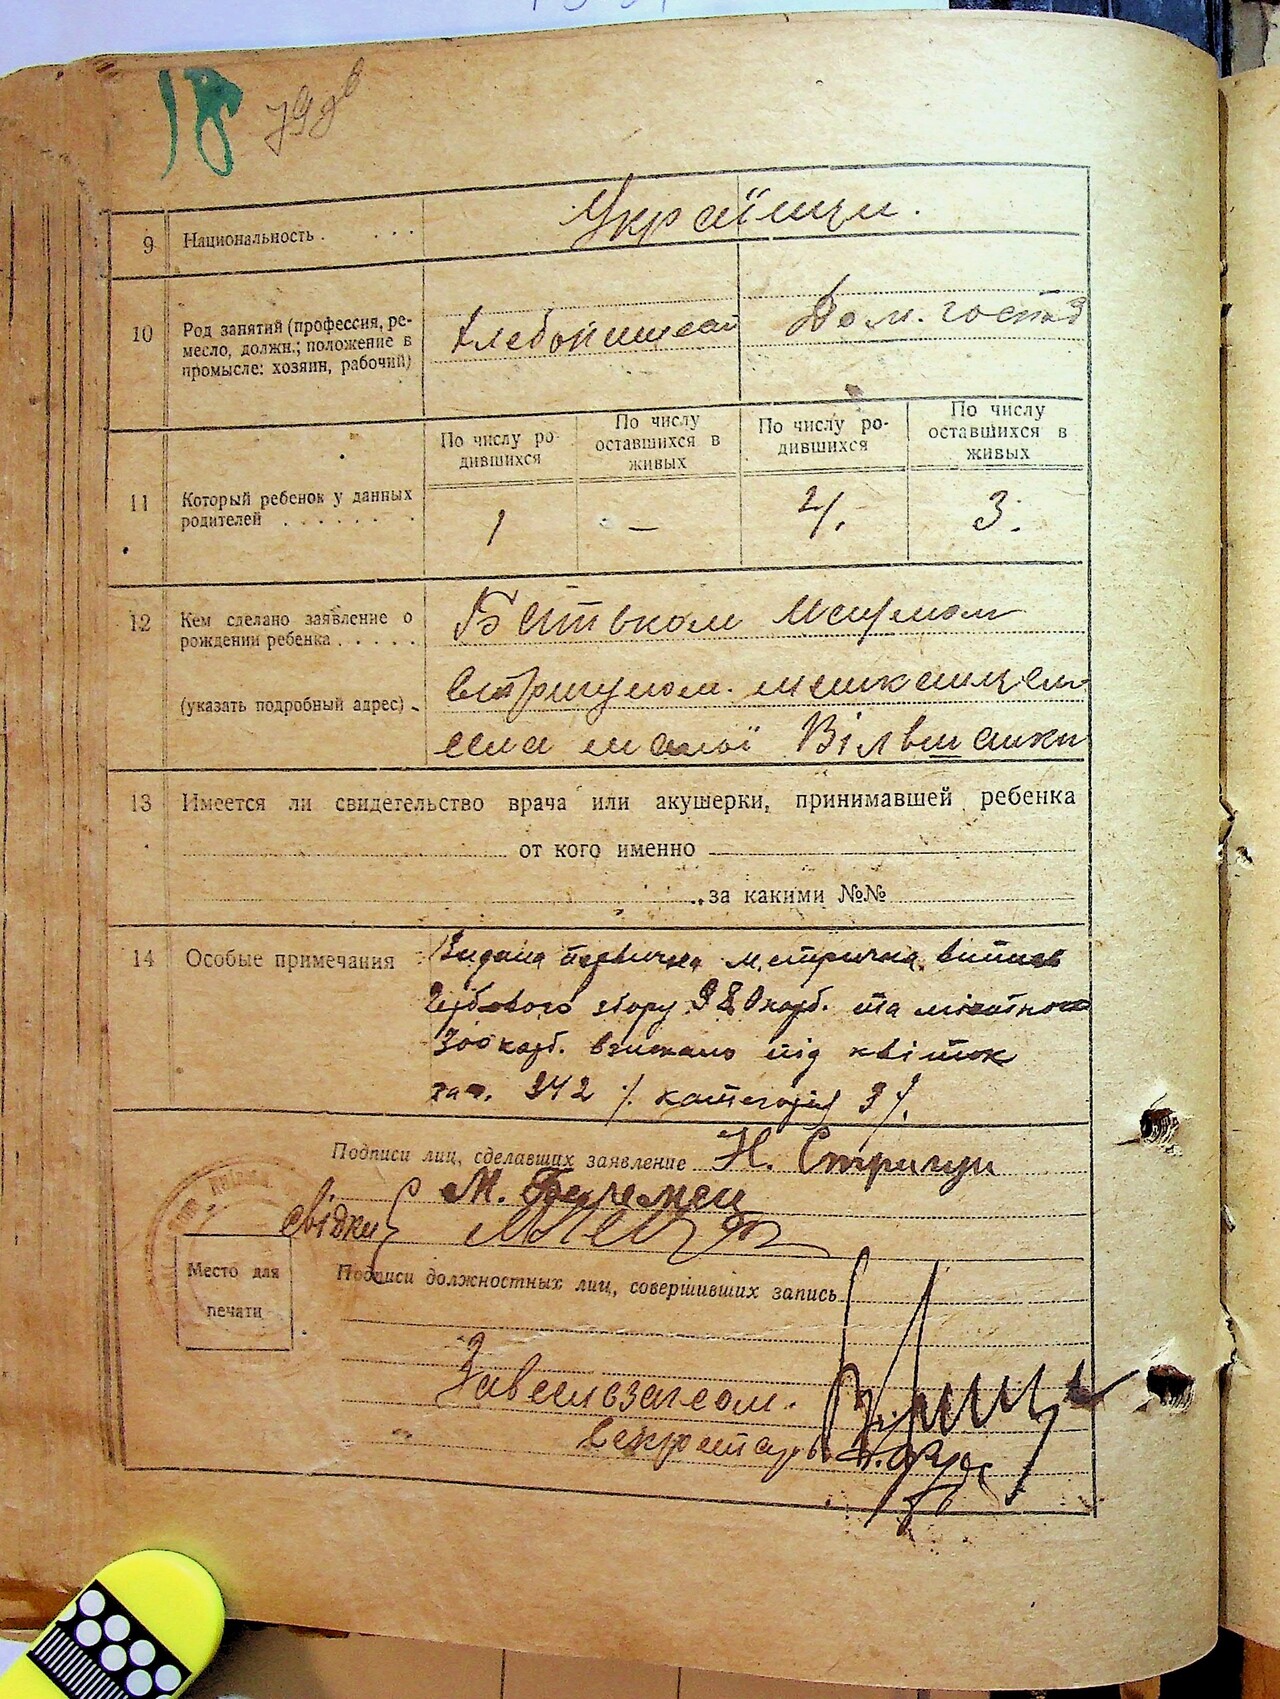 18 79
9 Национальность . . . . Українци.
10 Род занятий (профессия, ре-
месло, должн.; положение в
промысле: хозяин, рабочий)
Хлебопашест Дом. господ
По числу ро-
дившихся
По числу
оставшихся в
живых
По числу ро-
дившихся
По числу
оставшихся в
живых
11 Который ребенок у данных
родителей . . . . . . . .
1 — 4. 3.
12 Кем сделано заявление о
рождении ребенка . . . . .
(указать подробный адрес) .
Батьком
Стригуном. мешканцем
села малої Вільшанки
13 Имеется ли свидетельство врача или акушерки, принимавшей ребенка
от кого именно
за какими №№
14 Особые примечания
Видана первична метрична випись
Гербового збору 380 карб. та містного
300 карб. взискано під квіток
зат. 342 ./. категорія 3 ./.
Подписи лиц, сделавших заявление Н. Стригун
М.
свідки
Место для
печати
Подписи должностных лиц, совершивших запись
Завсельзагсом.
Секретарь